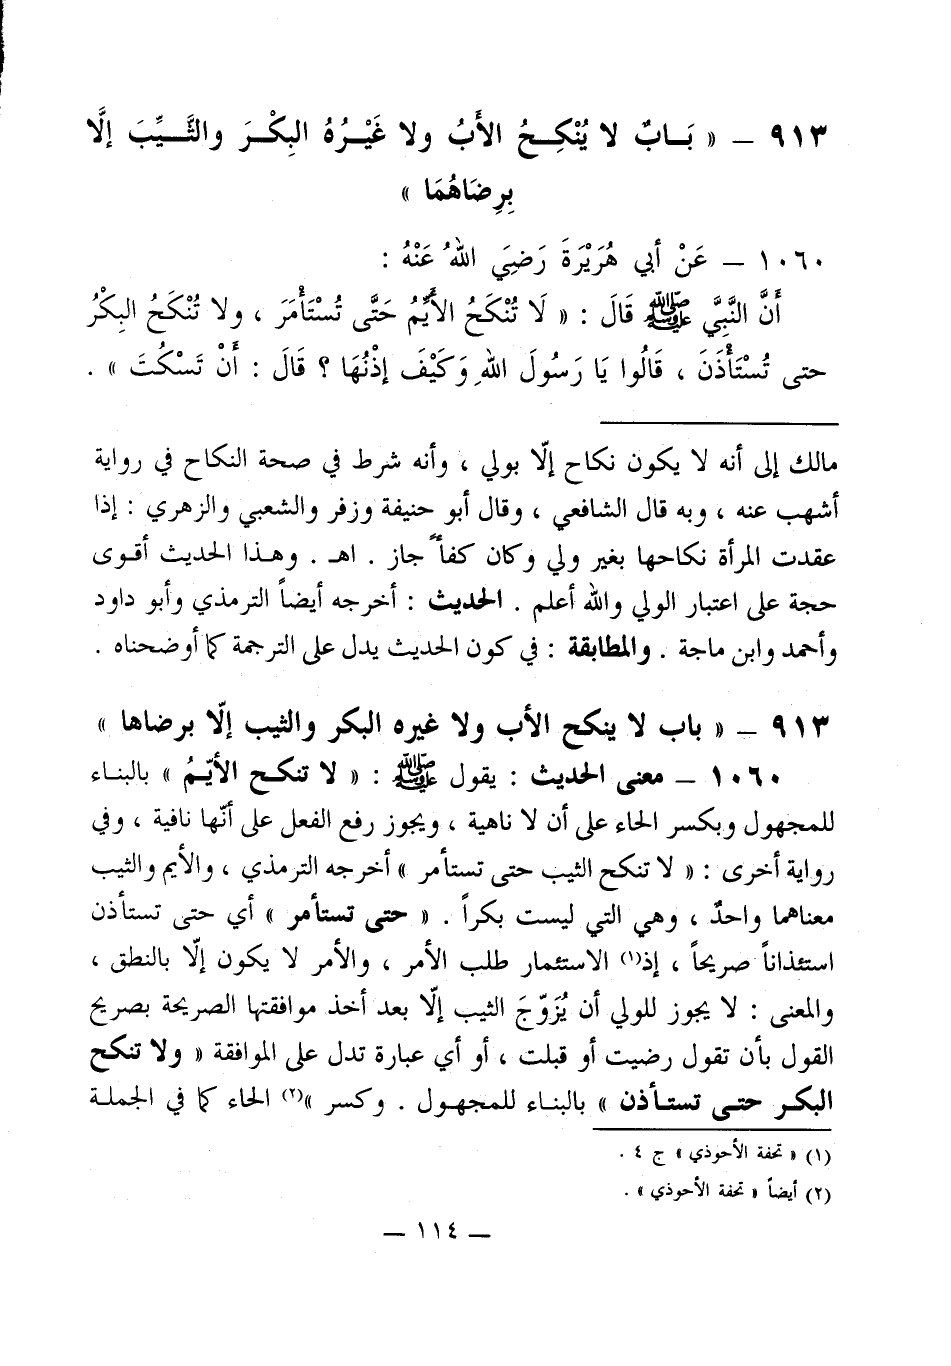 ٩١٣ ــ « بَـابٌ لا يُنْكِـحُ الأَبُ ولا غَيْـرُهُ البِكْـرَ والثَّـيِّبَ إلَّا
بِرِضَاهُمَا »
١٠٦٠ ــ عَنْ أبي هُرَيْرَةَ رَضِيَ اللهُ عَنْهُ :
أَنَّ النَّبِيَّ ﷺ قَالَ : « لَا تُنْكَحُ الأَيِّمُ حَتَّى تُسْتَأْمَرَ ، ولا تُنْكَحُ البِكْرُ
حتى تُسْتَأْذَنَ ، قَالُوا يَا رَسُولَ اللهِ وَكَيْفَ إذْنُهَا ؟ قَالَ : أَنْ تَسْكُتَ » .
مالك إلى أنه لا يكون نكاح إلّا بولي ، وأنه شرط في صحة النكاح في رواية
أشهب عنه ، وبه قال الشافعي ، وقال أبو حنيفة وزفر والشعبي والزهري : إذا
عقدت المرأة نكاحها بغير ولي وكان كفأً جاز . اهـ . وهـذا الحديث أقوى
حجة على اعتبار الولي والله أعلم . الحديث : أخرجه أيضاً الترمذي وأبو داود
وأحمد وابن ماجة . والمطابقة : في كون الحديث يدل على الترجمة كما أوضحناه .
٩١٣ ــ « باب لا ينكح الأب ولا غيره البكر والثيب إلّا برضاها »
١٠٦٠ ــ معنى الحديث : يقول ﷺ : « لا تنكـح الأيّـمُ » بالبنـاء
للمجهول وبكسر الحاء على أن لا ناهية ، ويجوز رفع الفعل على أنّها نافية ، وفي
رواية أخرى : « لا تنكح الثيب حتى تستأمر » أخرجه الترمذي ، والأيم والثيب
معناهما واحدٌ ، وهي التي ليست بكراً . « حتى تستأمر » أي حتى تستأذن
استئذاناً صريحاً ، إذ(١) الاستئمار طلب الأمر ، والأمر لا يكون إلّا بالنطق ،
والمعنى : لا يجوز للولي أن يُزَوِّجَ الثيب إلّا بعد أخذ موافقتها الصريحة بصريح
القول بأن تقول رضيت أو قبلت ، أو أي عبارة تدل على الموافقة « ولا تنكح
البكـر حتـى تستـأذن » بالبناء للمجهول . وكسر »(٢) الحاء كما في الجملـة
(١) « تحفة الأحوذي » ج ٤ .
(٢) أيضاً « تحفة الأحوذي » .
ــ ١١٤ ــ